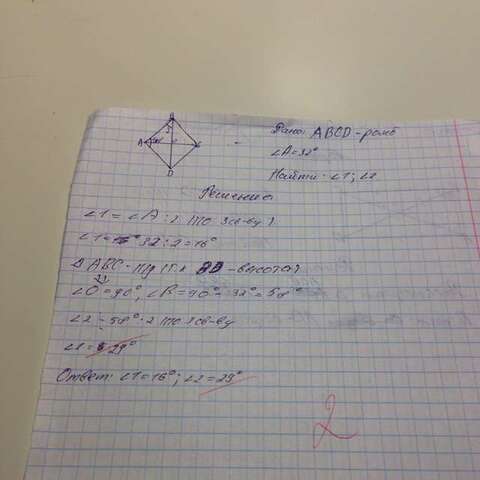 B
A
D
Дано: ABCD-ромб
∠A=32°
Найти: ∠1; ∠2
Решение
∠1=∠A:2 (по 3св-ву)
32:2=16°
-высота)
=90°, ∠B=90°-32°=58°
∠2=58°:2 по 3св-ву
29°
Ответ: ∠1=16°; ∠2=29°
2